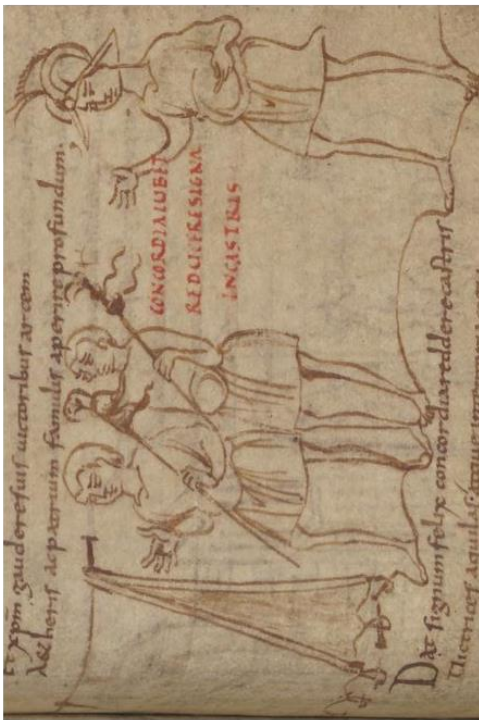 et xpm gaudere suis uictoribus arcem
Aetheris ac patrium famulis aperire profundum.
CONCORDIA IUBET
REDUCERE SIGNA
IN CASTRIS
Dat signum felix concordia reddere castris
Uictrices aquilas atque in